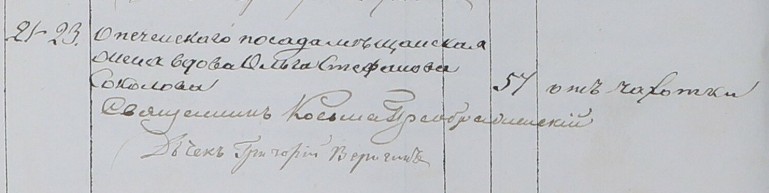 21 23. Опеченского посада мѣщанская
жена вдова Ольга Стефанова
Соколова 57 отъ чахотки
Священникъ Косьма Преображенскій
Дьячекъ Григорій